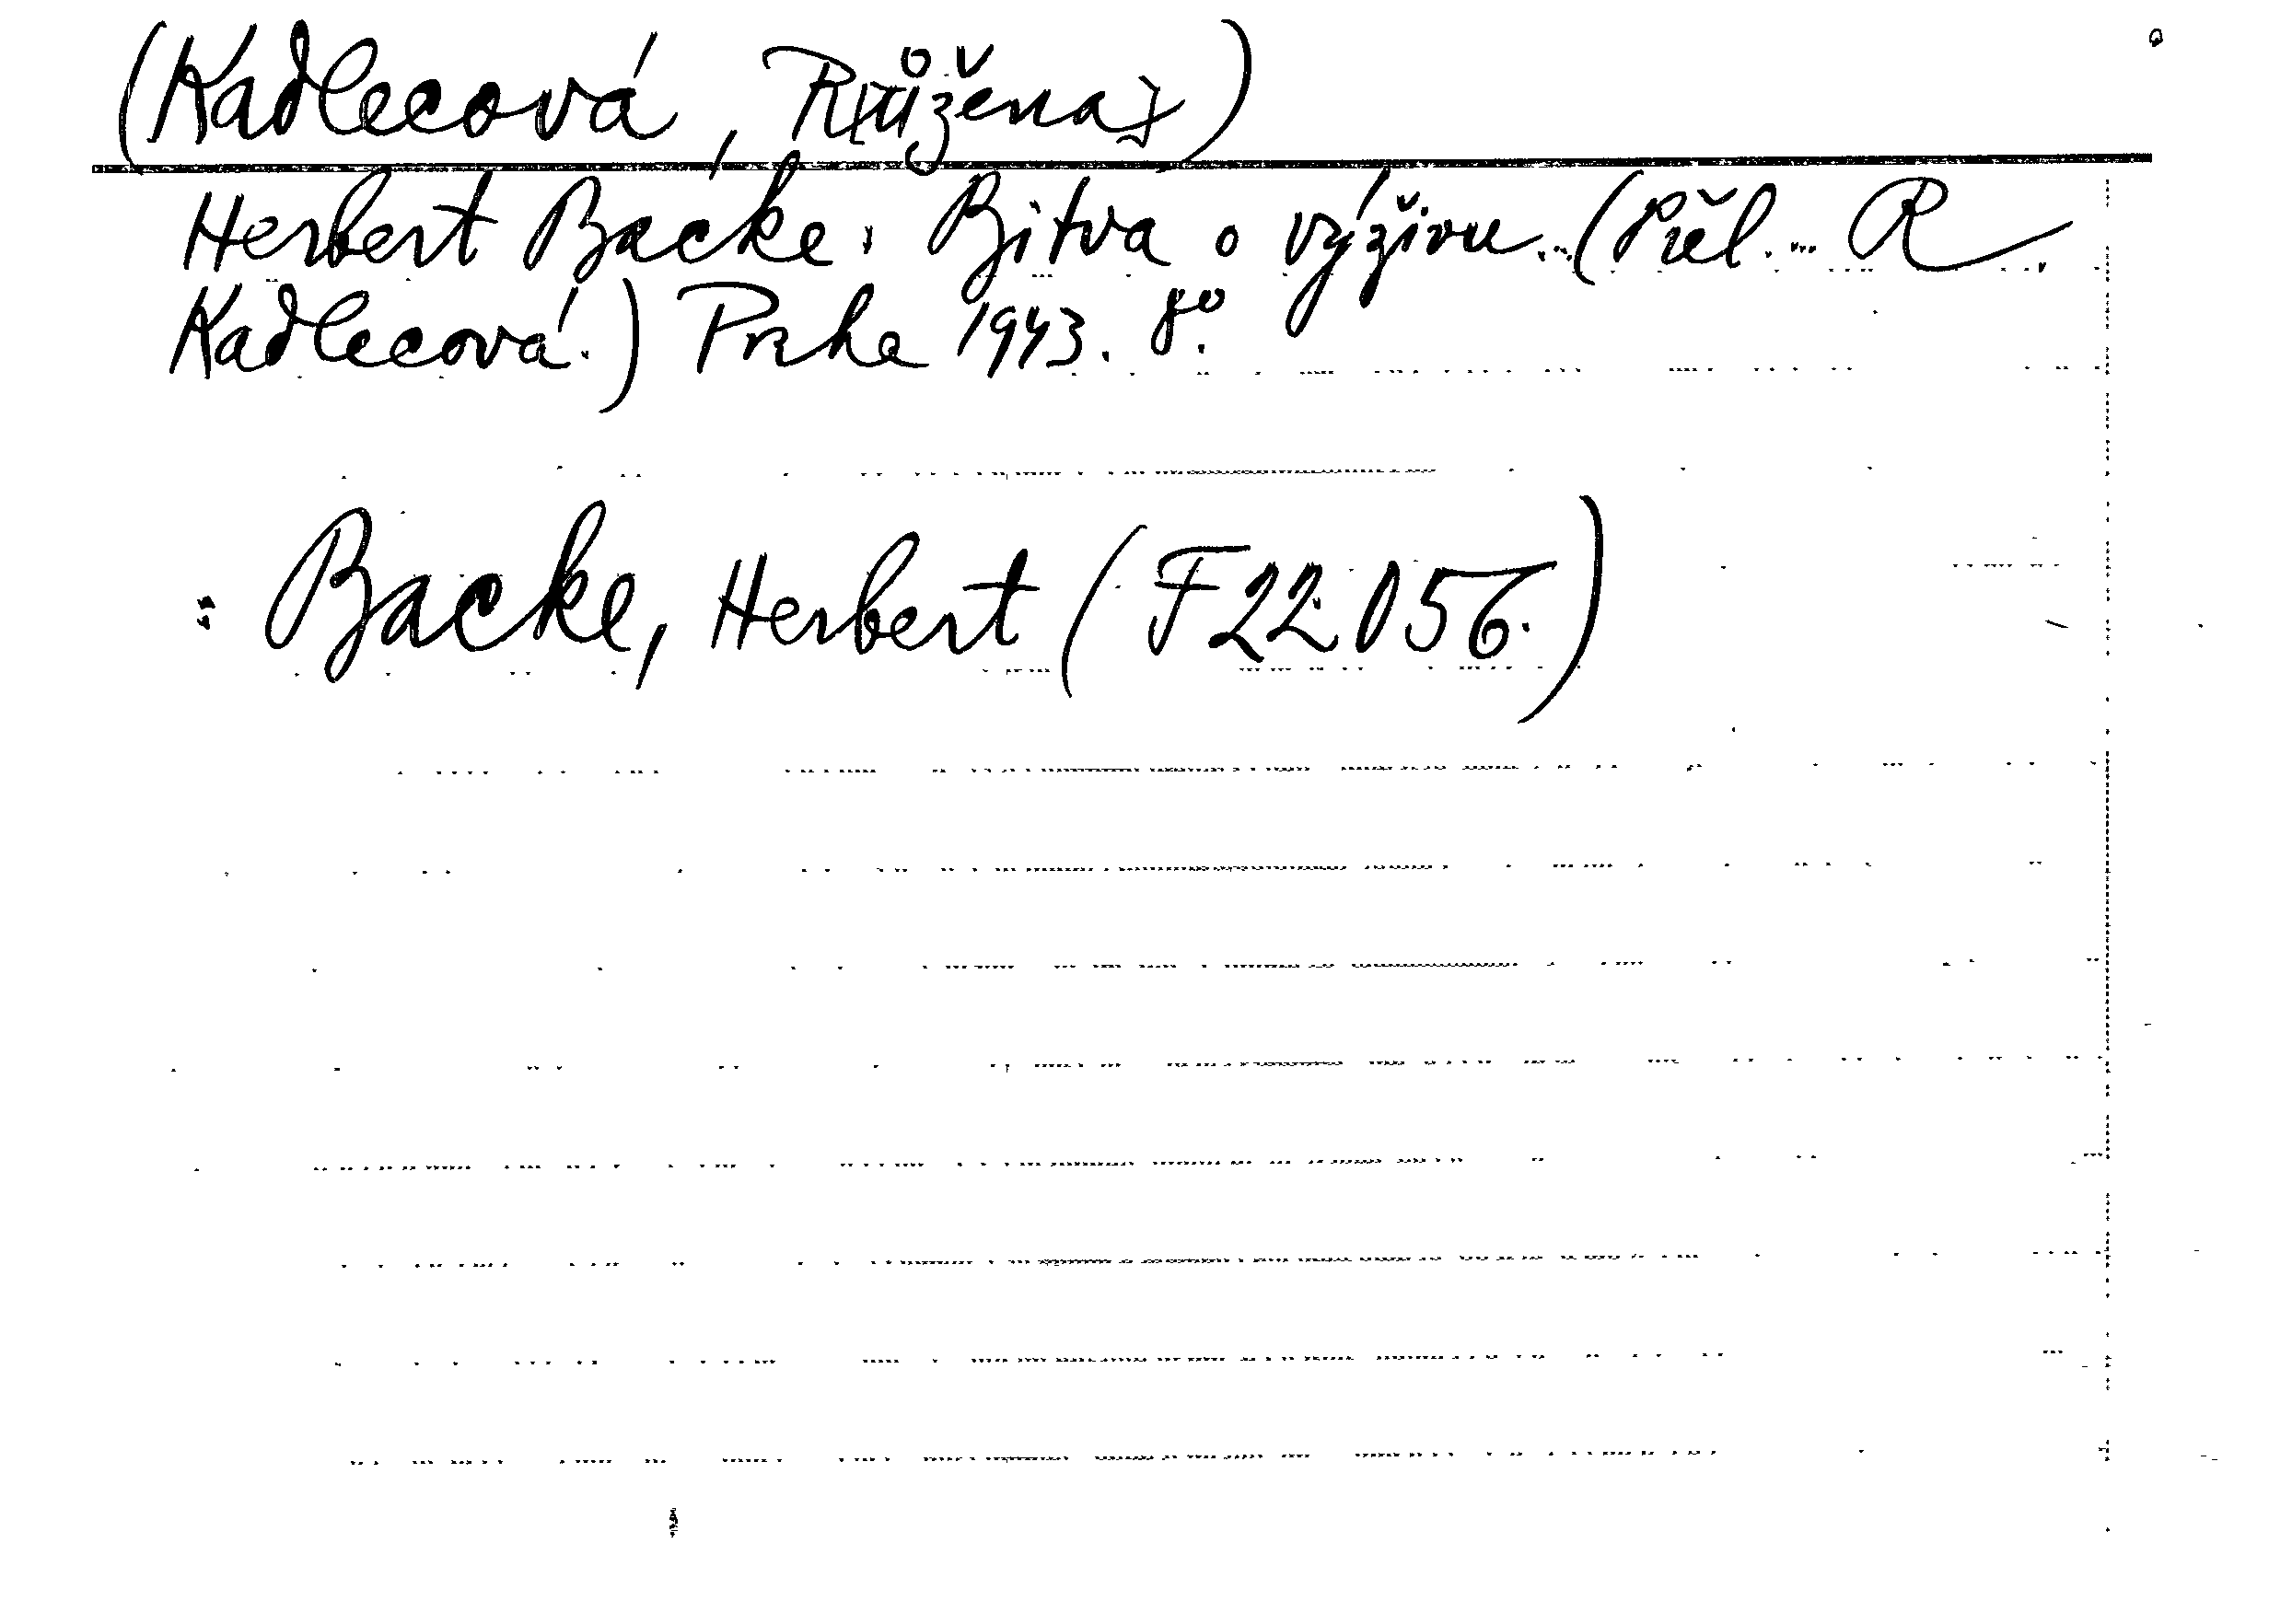 (Kadlecová, R[ůžena])
Herbert Backe: Bitva o výživu...(Přel. ... R.
Kadlecová.) Praha 1943. 8º.
: Backe, Herbert (F 22 056.)